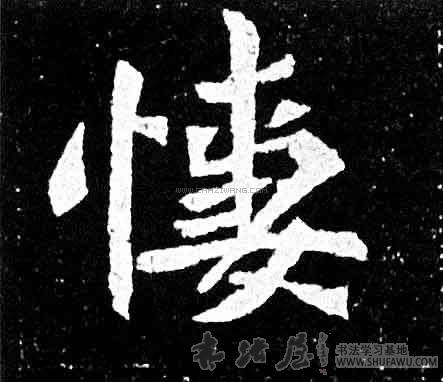 悽
WWW.SHAZIWANG.COM
书法屋
书法学习基地
WWW.SHUFAWU.COM